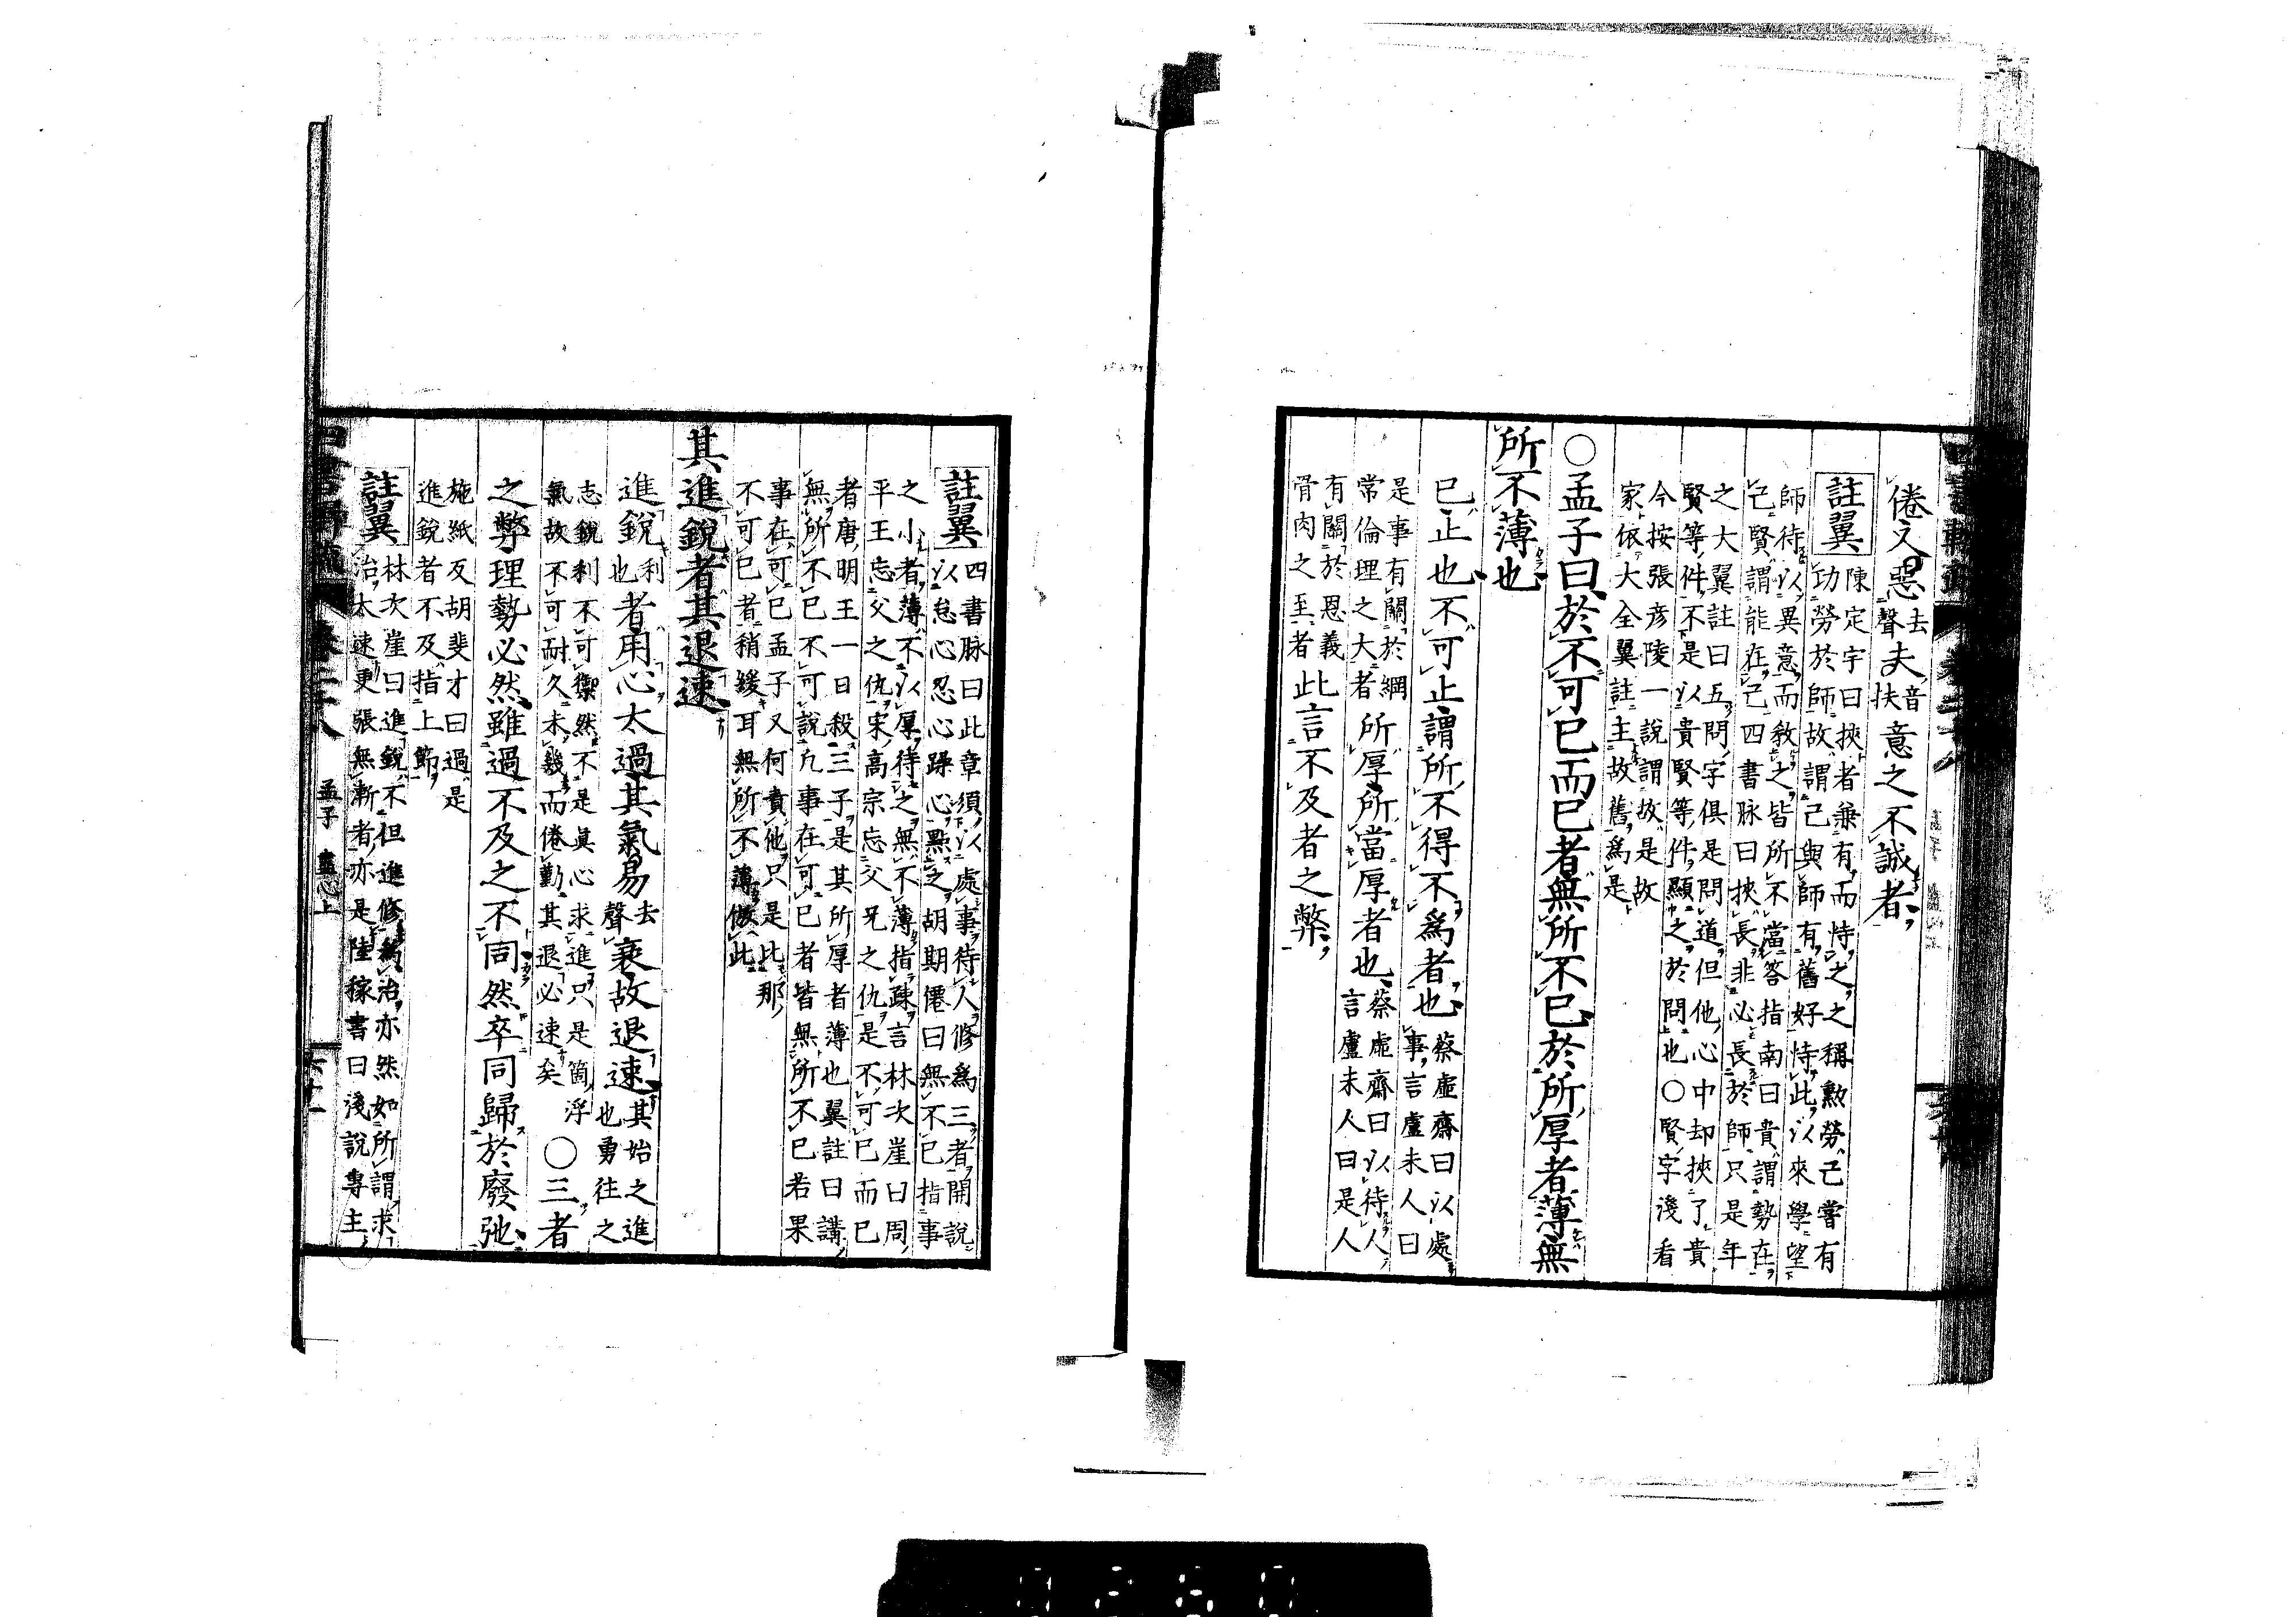 倦又惡去聲夫音扶意之不誠者
註翼
陳定宇曰挾者兼有而恃之之稱勲勞己嘗有
功勞於師故謂己與師有舊好恃此以來學望
師待以異意而教之皆所不當答指南曰貴謂勢在
己賢謂能在己四書脉曰挾長非必長於師只是年
之大翼註曰五問字俱是問道但他心中却挾了貴
賢等件不是以貴賢等件顯之於問也○賢字淺看
今按張彦陵一說謂故是故
家依大全翼註主故舊爲是
○孟子曰於不可已而已者無所不已於所厚者薄無
所不薄也
已止也不可止謂所不得不爲者也
蔡虚齋曰以處
事言盧未人曰
是事有關於綱
常倫理之大者
所厚所當厚者也
蔡虚齋曰以待人
言盧未人曰是人
有關於恩義
骨肉之至者
此言不及者之弊
註翼
四書脉曰此章須以處事待人修爲三者開說
以怠心忍心躁心點之胡期僊曰無不已指事
之小者薄不以厚待之無不薄指疎言林次崖曰周
平王忘父之仇宋高宗忘父兄之仇是不可已而已
者唐明王一日殺三子是其所厚者薄也翼註曰講
無所不已不可說凢事在可已者皆無所不已若果
事在可已孟子又何責他只是比那
不可已者稍緩耳無所不薄倣此
其進銳者其退速
進銳利也者用心太過其氣易去聲衰故退速
其始之進
也勇往之
志銳利不可禦然不是眞心求進只是箇浮
氣故不可耐久未幾而倦勤其退必速矣
○三者
之弊理勢必然雖過不及之不同然卒同歸於廢弛
施紙反胡斐才曰過是
進銳者不及指上節
註翼
林次崖曰進銳不但進修爲治亦然如所謂求
治太速更張無漸者亦是陸稼書曰淺說專主
孟子 盡心上